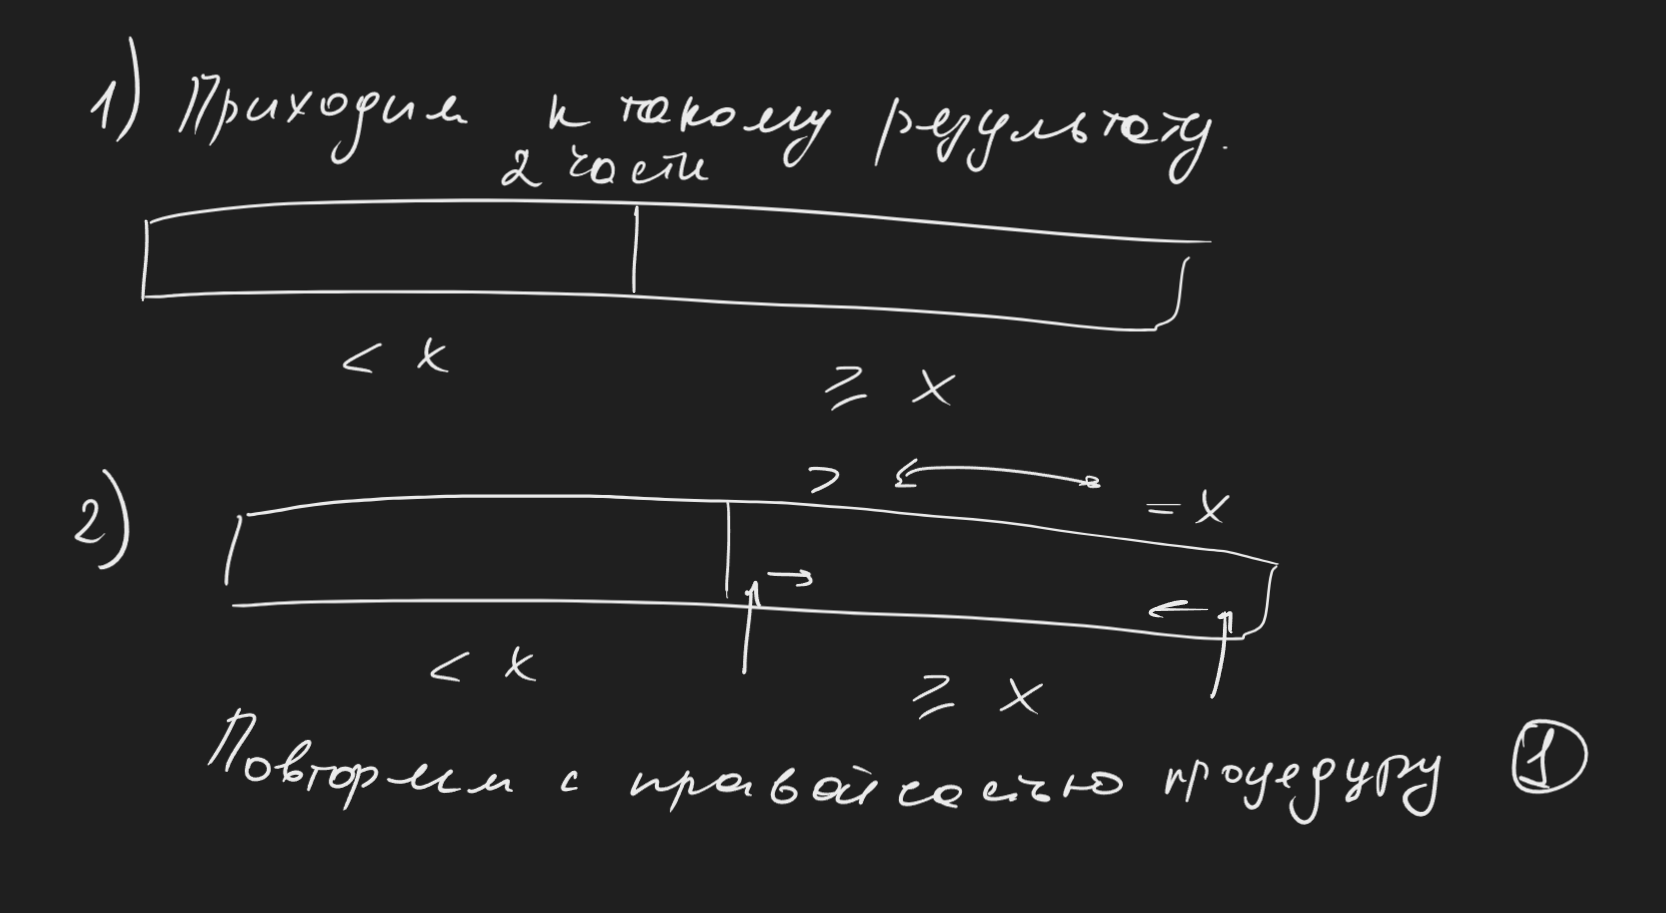 1) Приходим к такому результату.
2 части
< x
≥ x
2)
> = x
< x
≥ x
Повторим с правой частью процедуру 1